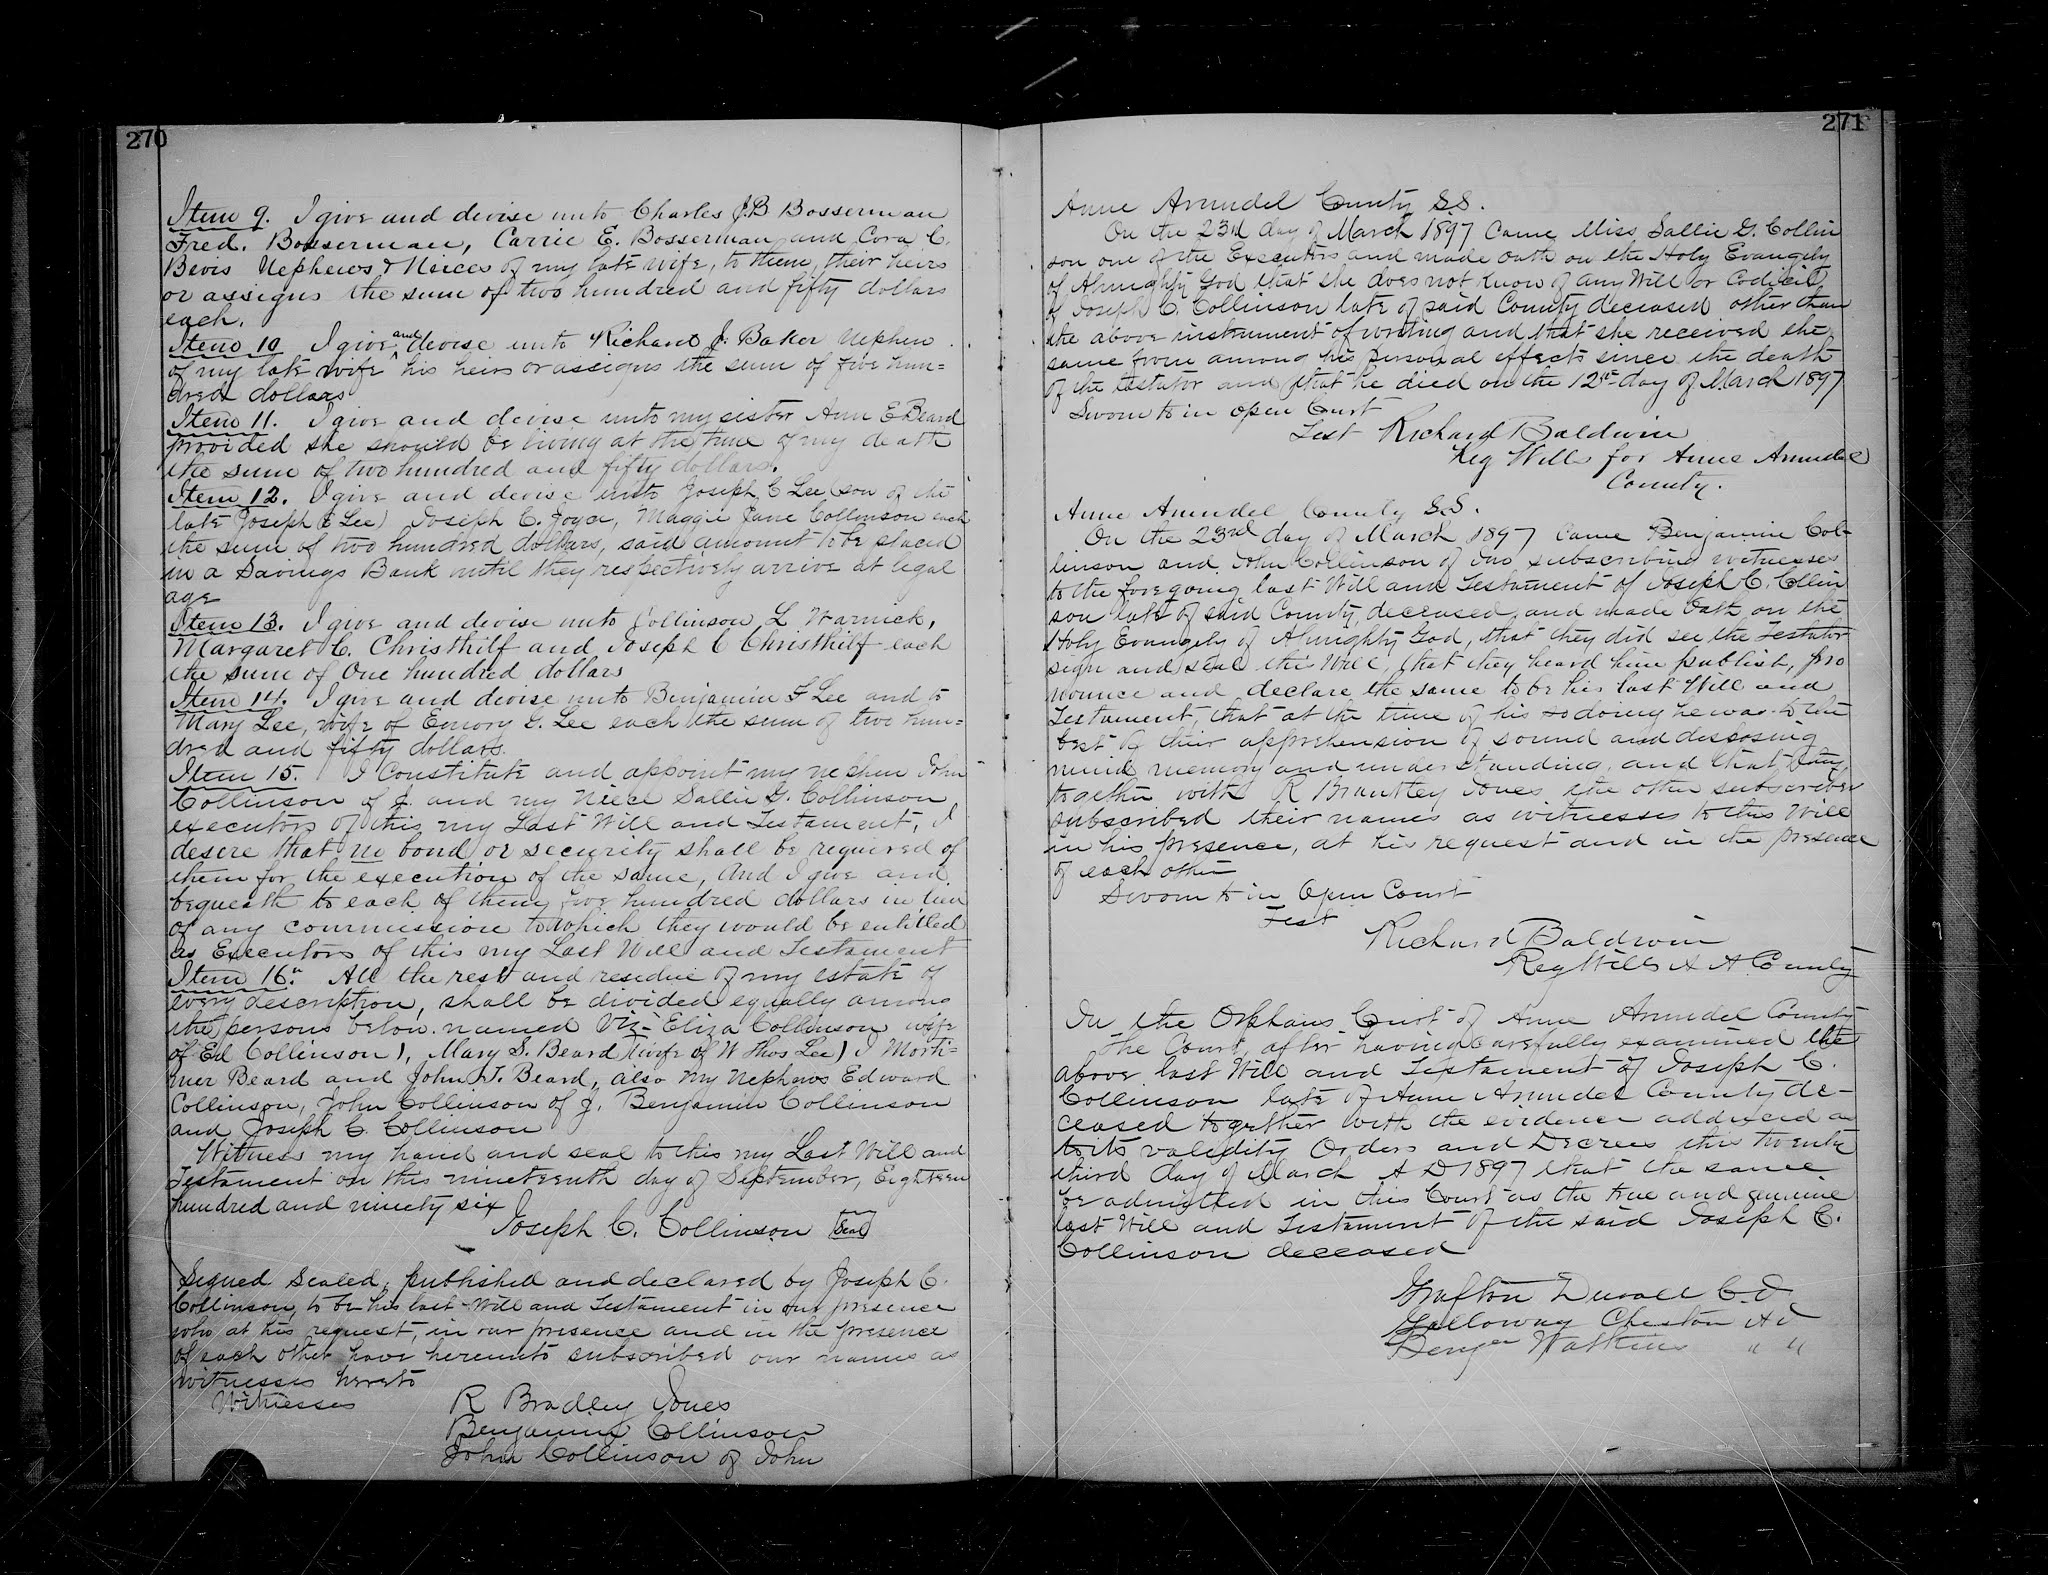 270
Item 9. I give and devise unto Charles J.B Bosserman
Fred. Bosserman, Carrie E. Bosserman and Cora C.
Bevis Nephews & Nieces of my late wife, to them, their heirs
or assigns the sum of two hundred and fifty dollars
each.
Item 10 I give and devise unto Richard J. Baker Nephew
of my late wife his heirs or assigns the sum of five hun=
dred dollars
Item 11. I give and devise unto my sister Ann E Beard
provided she should be living at the time of my death
the sum of two hundred and fifty dollars.
Item 12. I give and devise unto Joseph C Lee (son of the
late Joseph E Lee) Joseph C. Joyce, Maggie Jane Collinson each
the sum of two hundred dollars, said amount to be placed
in a Savings Bank until they respectively arrive at legal
age
Item 13. I give and devise unto Collinson L Warnick,
Margaret C. Christhilf and Joseph C Christhilf each
the sum of One hundred dollars
Item 14. I give and devise unto Benjamin F Lee and to
Mary Lee, wife of Emory G. Lee each the sum of two hun=
dred and fifty dollars.
Item 15. I Constitute and appoint my nephew John
Collinson of J. and my Niece Sallie G. Collinson
executors of this my Last Will and Testament, I
desire that no bond or security shall be required of
them for the execution of the same, And I give and
bequeath to each of them five hundred dollars in lieu
of any commission to which they would be entitled
as Executors of this my Last Will and Testament
Item 16". All the rest and residue of my estate of
every description, shall be divided equally among
the persons below named Viz- Eliza Collinson wife
of Ed Collinson), Mary S. Beard (wife of W Thos Lee) J Morti=
mer Beard and John T. Beard, also my Nephews Edward
Collinson, John Collinson of J. Benjamin Collinson
and Joseph C. Collinson
Witness my hand and seal to this my Last Will and
Testament on this nineteenth day of September, Eighteen
hundred and ninety six
Joseph C. Collinson Seal
Signed Sealed, published and declared by Joseph C.
Collinson, to be his last Will and Testament in our presence
who at his request, in our presence and in the presence
of each other have hereunto subscribed our names as
witnesses hereto
Witnesses R Bradley Jones
Benjamin Collinson
John Collinson of John
271
Anne Arundel County S.S.
On the 23rd day of March 1897 Came Miss Sallie G. Collin
son one of the Executors and made oath on the Holy Evangely
of Almighty God that she does not know of any Will or Codicil
of Joseph C. Collinson late of said County deceased other than
the above instrument of writing and that she received the
same from among his personal effects since the death
of the testator and that he died on the 12th day of March 1897
Sworn to in open Court
Test Richard Baldwin
Reg Wills for Anne Arundel
County.
Anne Arundel County S.S.
On the 23rd day of March 1897 Came Benjamin Col-
linson and John Collinson of Jno subscribing witnesses
to the foregoing last Will and Testament of Joseph C. Collin
son late of said County, deceased, and made Oath on the
Holy Evangely of Almighty God, that they did see the Testator
sign and seal this Will, that they heard him publish, pro
nounce and declare the same to be his last Will and
Testament, that at the time of his so doing he was to the
best of their apprehension of sound and disposing
mind memory and understanding, and that they
together with R Brantley Jones the other subscriber
subscribed their names as witnesses to this Will
in his presence, at his request and in the presence
of each other
Sworn to in Open Court
Test
Richard Baldwin
Reg Wills A A County
In the Orphans Court of Anne Arundel County
The Court, after having carefully examined the
above last Will and Testament of Joseph C.
Collinson late of Anne Arundel County de-
ceased together with the evidence adduced as
to its validity Orders and Decrees this twenty
third day of March A D 1897 that the same
be admitted in this Court as the true and genuine
last Will and Testament of the said Joseph C.
Collinson deceased
Grafton Duvall C.J
Galloway Cheston A J
Benjn Watkins " "